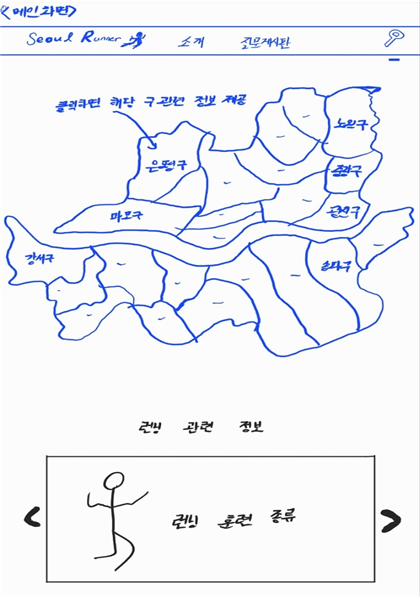 <메인화면>
Seoul Runner 소개 질문게시판
클릭하면 해당 구 관련 정보 제공
노원구
은평구
중랑구
광진구
마포구
강서구
송파구
런닝 관련 정보
< 런닝 훈련 종류 >